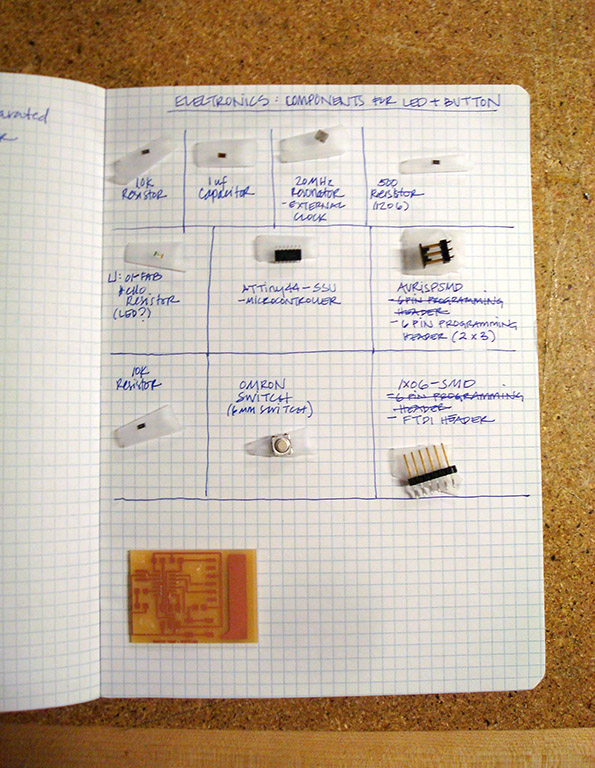 ELECTRONICS: COMPONENTS FOR LED + BUTTON
10K
RESISTOR
1 uF
CAPACITOR
20MHz
RESONATOR
- EXTERNAL
CLOCK
500
RESISTOR
(1206)
U: 01-FAB
RESISTOR
(LED?)
ATTiny44-SSU
- MICROCONTROLLER
AVRISPSMD
- 6 PIN PROGRAMMING
HEADER
- 6 PIN PROGRAMMING
HEADER (2x3)
10K
RESISTOR
OMRON
SWITCH
(6MM SWITCH)
1X06-SMD
- 6 PIN PROGRAMMING
HEADER
- FTDI HEADER